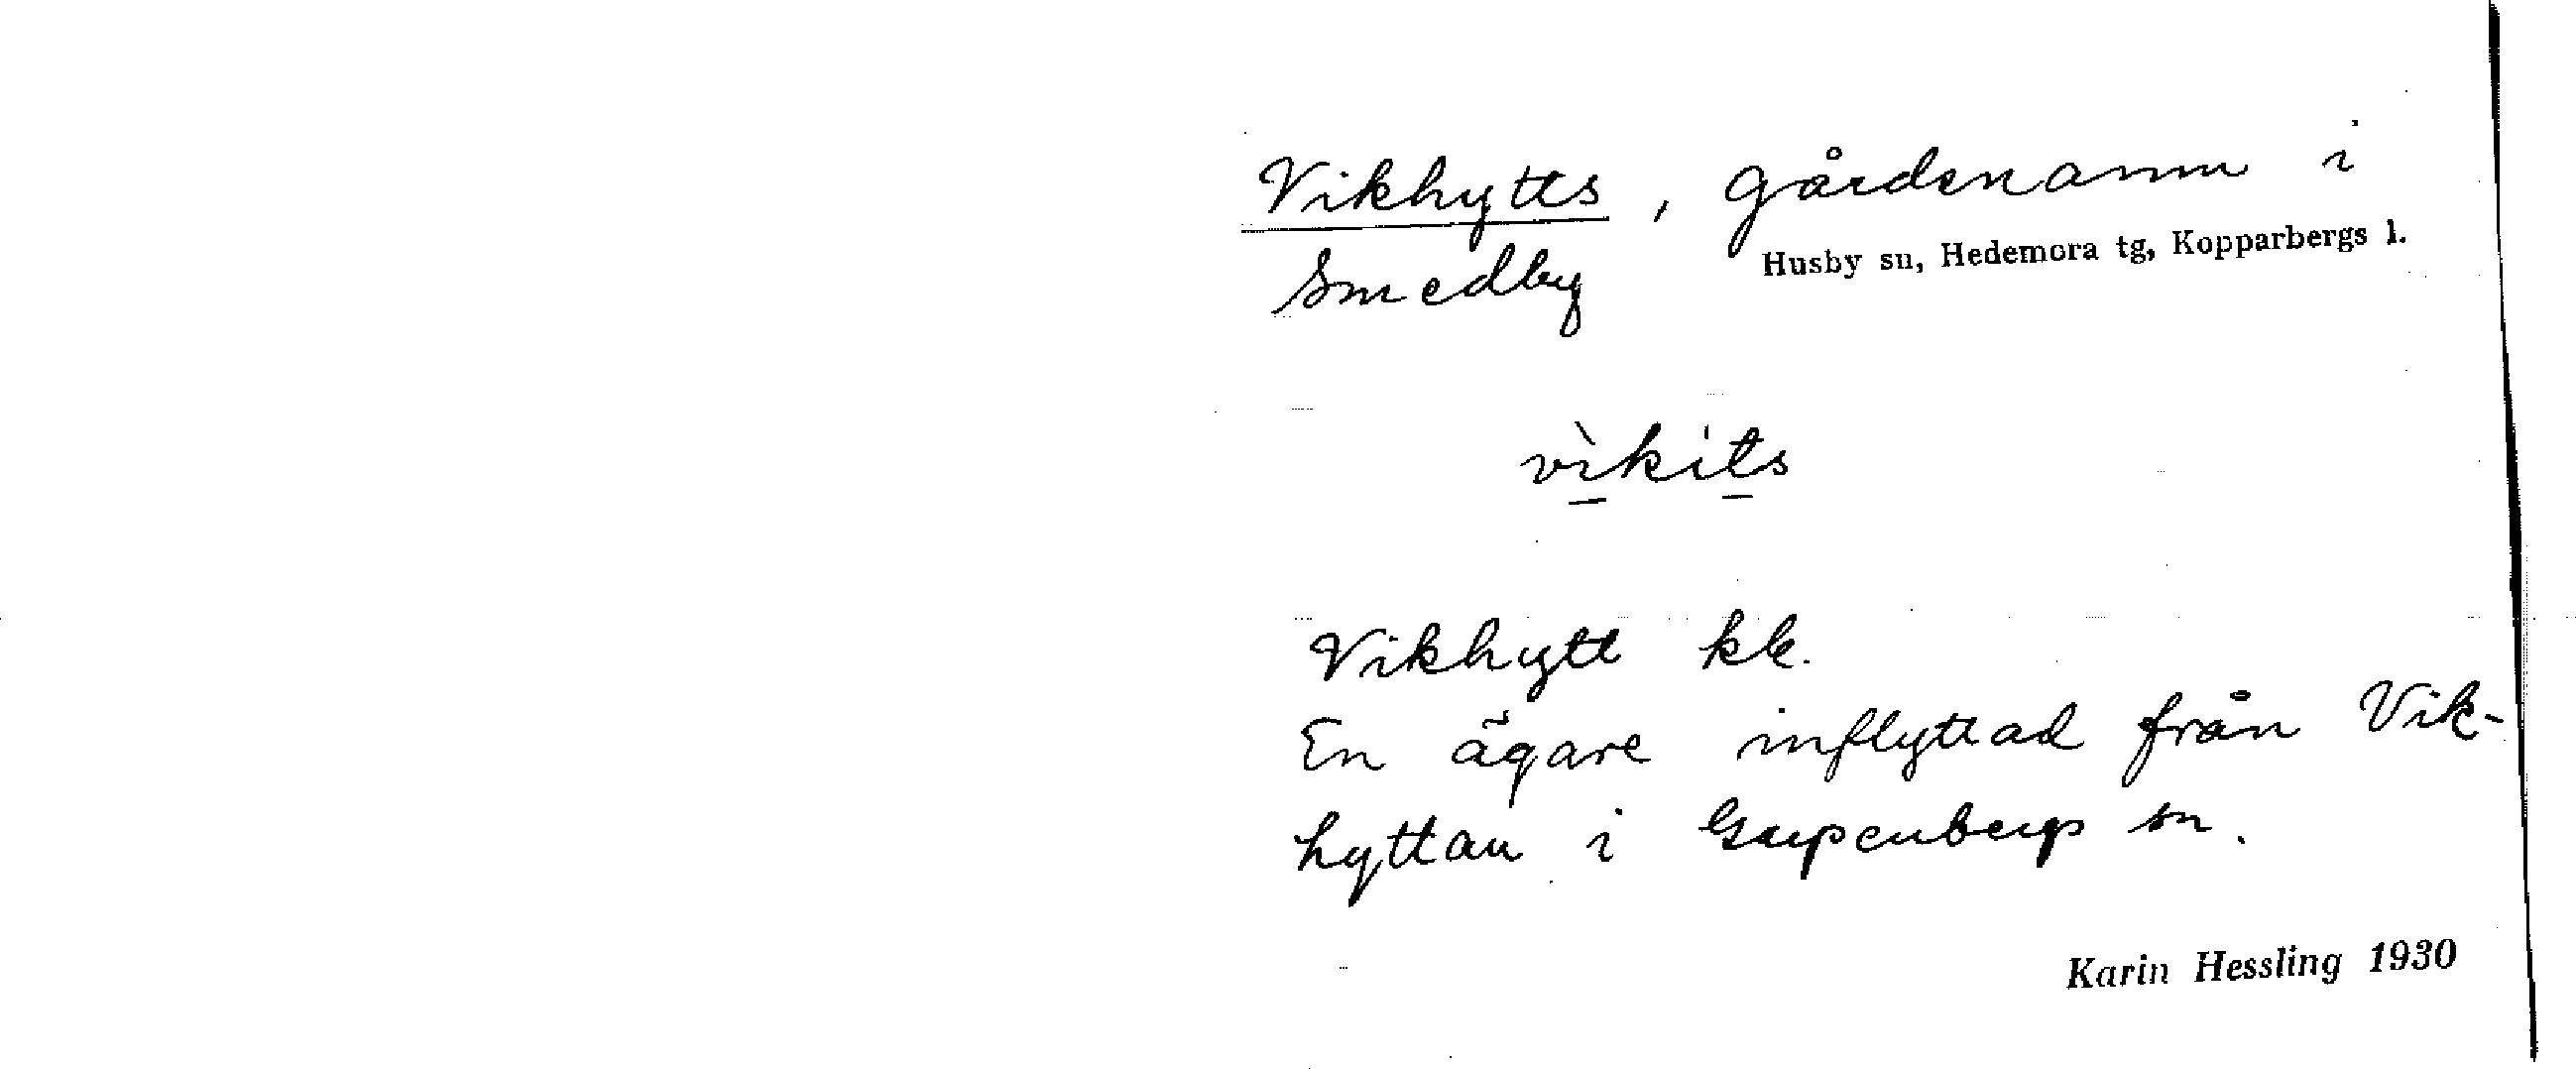 Vikhytts, gårdsnamn i
Husby sn, Hedemora tg, Kopparbergs l.
Smedby
vìkits
Vikhytt kk.
En ägare inflyttad från Vik-
hyttan i Garpenbergs sn.
Karin Hessling 1930